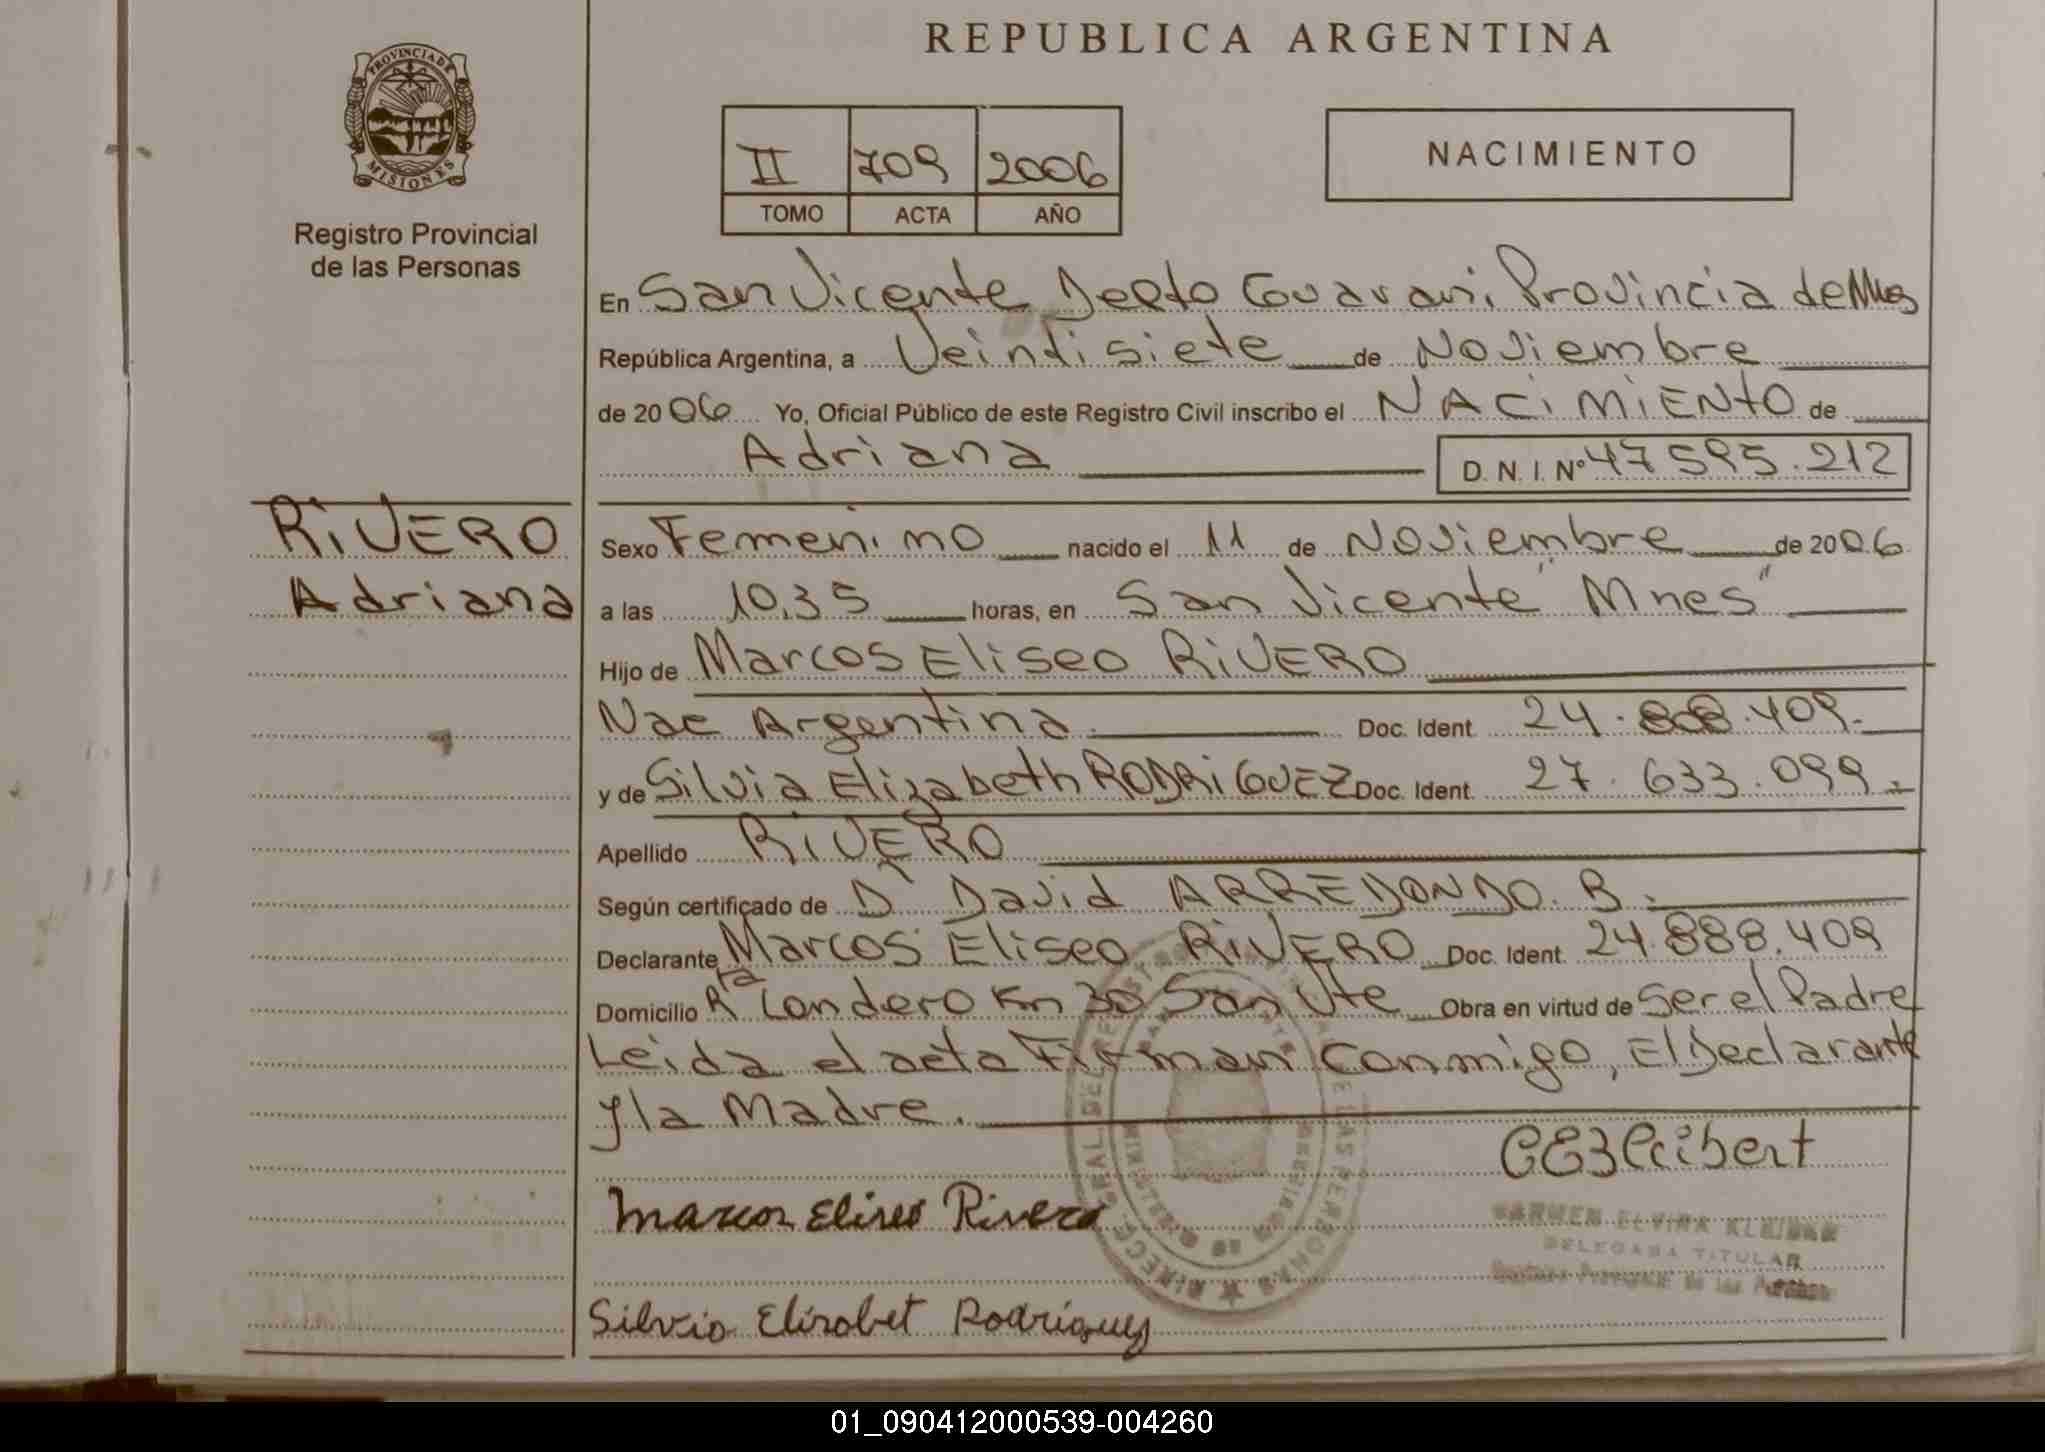 REPUBLICA ARGENTINA
PROVINCIA DE
MISIONES
Registro Provincial
de las Personas
II 709 2006
TOMO ACTA AÑO
NACIMIENTO
En San Vicente Depto Guarani, Provincia de Mnes
República Argentina, a Veintisiete de Noviembre
de 2006 Yo, Oficial Público de este Registro Civil inscribo el NACIMIENTO de
Adriana D. N. I. Nº 47595.212
RIVERO
Adriana
Sexo Femenino nacido el 11 de Noviembre de 2006
a las 10,35 horas, en San Vicente "Mnes"
Hijo de Marcos Eliseo RIVERO
Nac Argentina Doc. Ident. 24. 409.
y de Silvia Elizabeth RODRIGUEZ Doc. Ident. 27.633.099.
Apellido RIVERO
Según certificado de Dr David ARREDONDO. B.
Declarante Marcos Eliseo RIVERO Doc. Ident. 24.888.409
Domicilio Rta Londero Km 30 San Vte Obra en virtud de Ser el Padre
Leida el acta Firman Conmigo, El Declarante
y la Madre.
Marcos Eliseo Rivero
CARMEN ELVIRA
DELEGADA TITULAR
Registro Provincial de las Personas
Silvia Elizabet Rodriguez
01_090412000539-004260